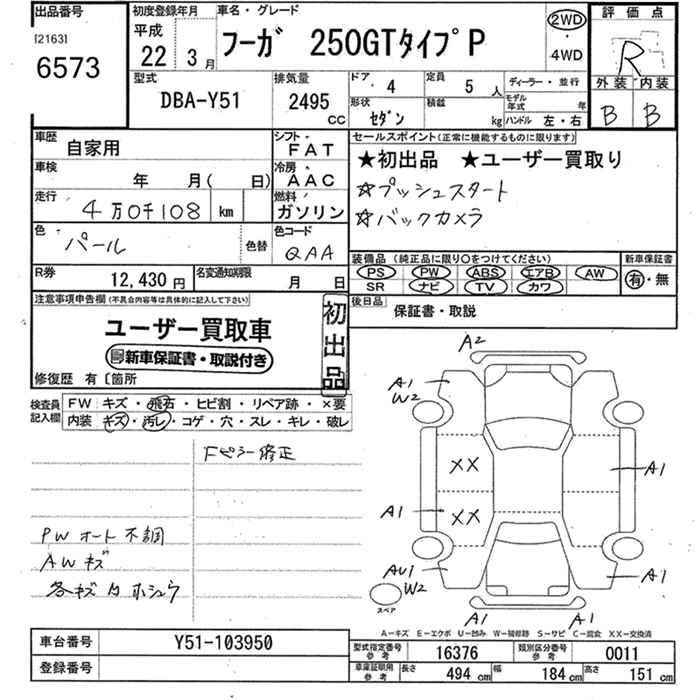 出品番号
[2163]
6573
初度登録年月
平成
22 3月
車名・グレード
フーガ 250GTタイプP
2WD
・
4WD
評価点
R
外装 内装
B B
型式
DBA-Y51
排気量
2495
CC
ドア 4
定員 5人
形状 セダン
積載 kg
ディーラー・並行
モデル年式 年
ハンドル 左・右
車歴 自家用
シフト FAT
車検 年 月( 日)
冷房 AAC
走行 4万0千108 km
燃料 ガソリン
色 パール
色替
色コード QAA
R券 12,430円
名変通知期限 月 日
セールスポイント(正常に機能するものに限ります)
★初出品 ★ユーザー買取り
☆プッシュスタート
☆バックカメラ
装備品(純正品に限り○をつけてください)
PS PW ABS エアB AW
SR ナビ TV カワ
新車保証書
有・無
後日品
保証書・取説
注意事項申告欄(不具合内容等は具体的に記入して下さい)
ユーザー買取車
新車保証書・取説付き
初出品
修復歴 有〔箇所
検査員記入欄
FW キズ・飛石・ヒビ割・リペア跡・×要
内装 キズ・汚レ・コゲ・穴・スレ・キレ・破レ
Fピラー修正
PWオート不調
AWキズ
各キズ凹ホシュウ
A2
A1
W2
XX
A1
A1
XX
AU1
W2
A1
スペア
A1
A1
A−キズ E−エクボ U−凹み W−補修跡 S−サビ C−腐食 XX−交換済
車台番号 Y51-103950
登録番号
型式指定番号 参考 16376
類別区分番号 参考 0011
車庫証明用 参考
長さ 494 cm
幅 184 cm
高さ 151 cm